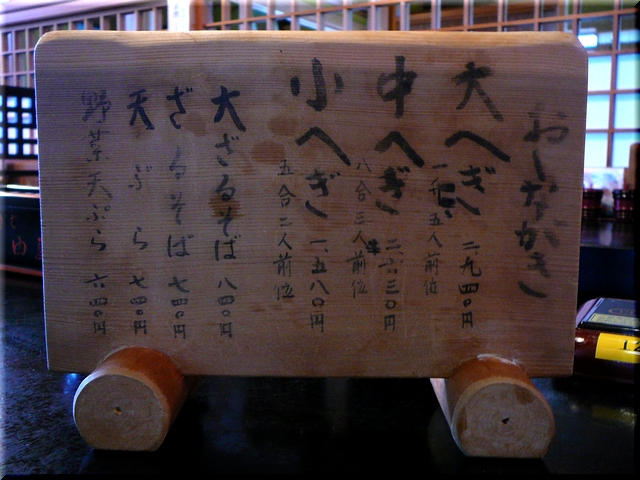 おしながき
大へぎ 二、九四〇円
一升五人前位
中へぎ 二、六三〇円
八合三人前位
小へぎ 一、五八〇円
五合二人前位
大ざるそば 八四〇円
ざるそば 七四〇円
天ぷら 七四〇円
野菜天ぷら 六四〇円
12